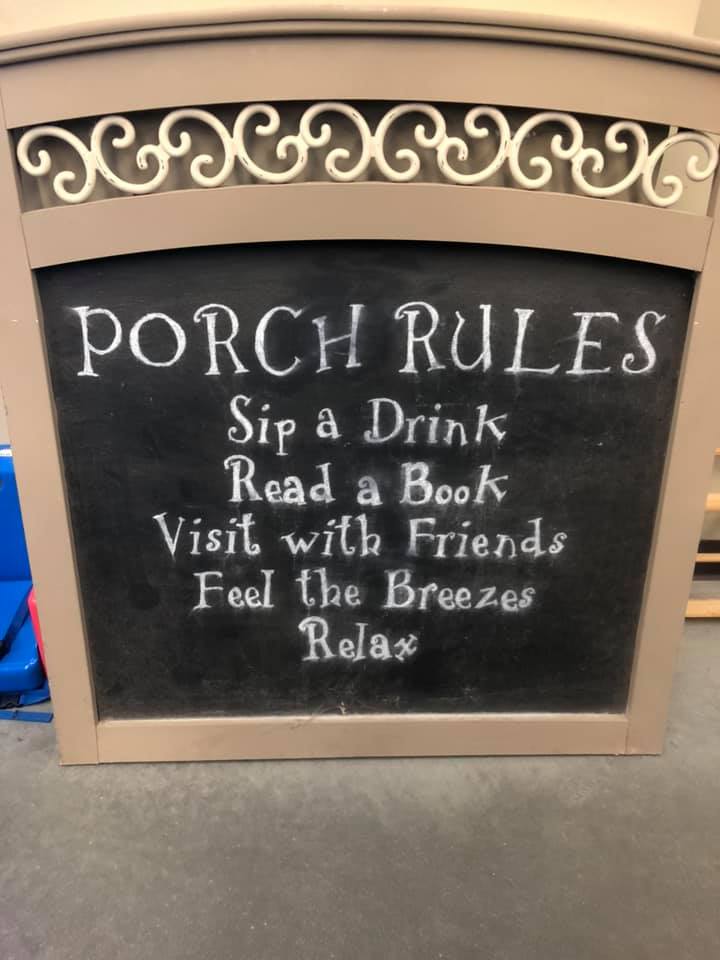 PORCH RULES
Sip a Drink
Read a Book
Visit with Friends
Feel the Breezes
Relax